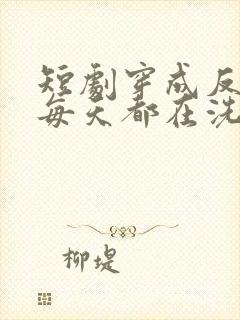 短劇穿成反
每天都在洗
柳堤